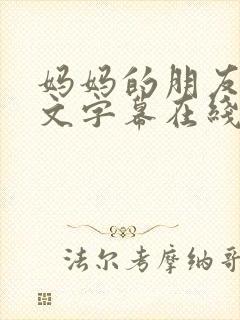 妈妈的朋友
文字幕在线
法尔考摩纳哥